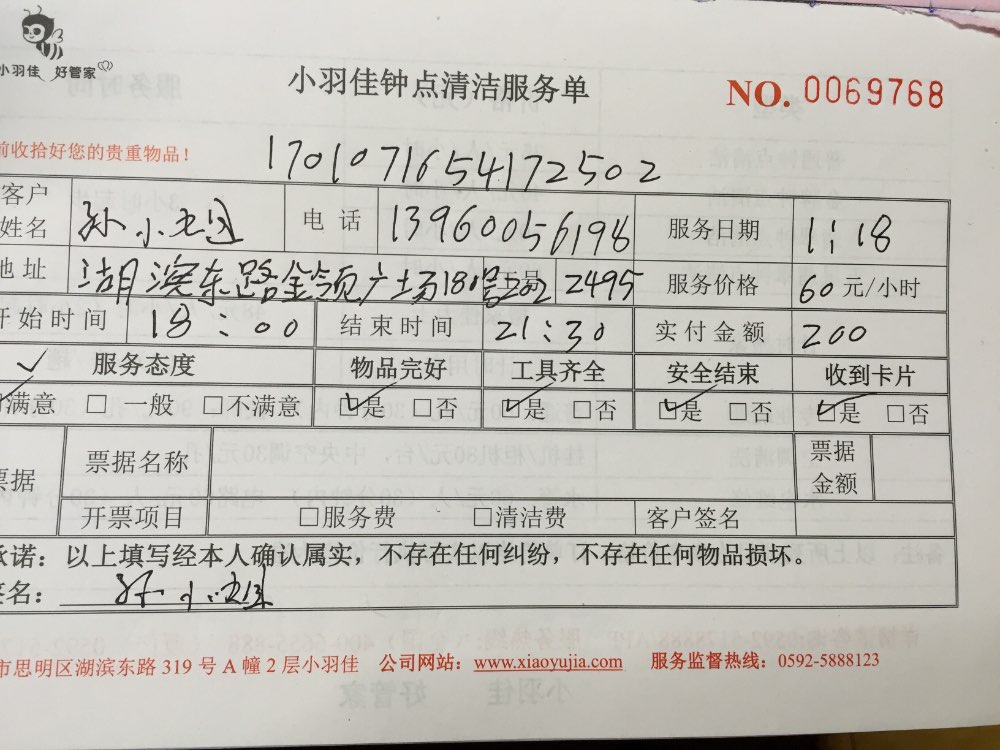 小羽佳 好管家
小羽佳钟点清洁服务单
NO. 0069768
前收拾好您的贵重物品！
170107165417 2502
客户姓名 孙小 电话 13960056198 服务日期 1:18
地址 湖滨东路金领广场180号 工号 2495 服务价格 60元/小时
开始时间 18:00 结束时间 21:30 实付金额 200
✓ 服务态度 物品完好 工具齐全 安全结束 收到卡片
满意 □ 一般 □不满意 ☑是 □否 ☑是 □否 ☑是 □否 ☑是 □否
票据 票据名称 票据金额
开票项目 □服务费 □清洁费 客户签名
承诺：以上填写经本人确认属实，不存在任何纠纷，不存在任何物品损坏。
签名： 孙小
市思明区湖滨东路 319 号 A 幢 2 层小羽佳 公司网站：www.xiaoyujia.com 服务监督热线：0592-5888123